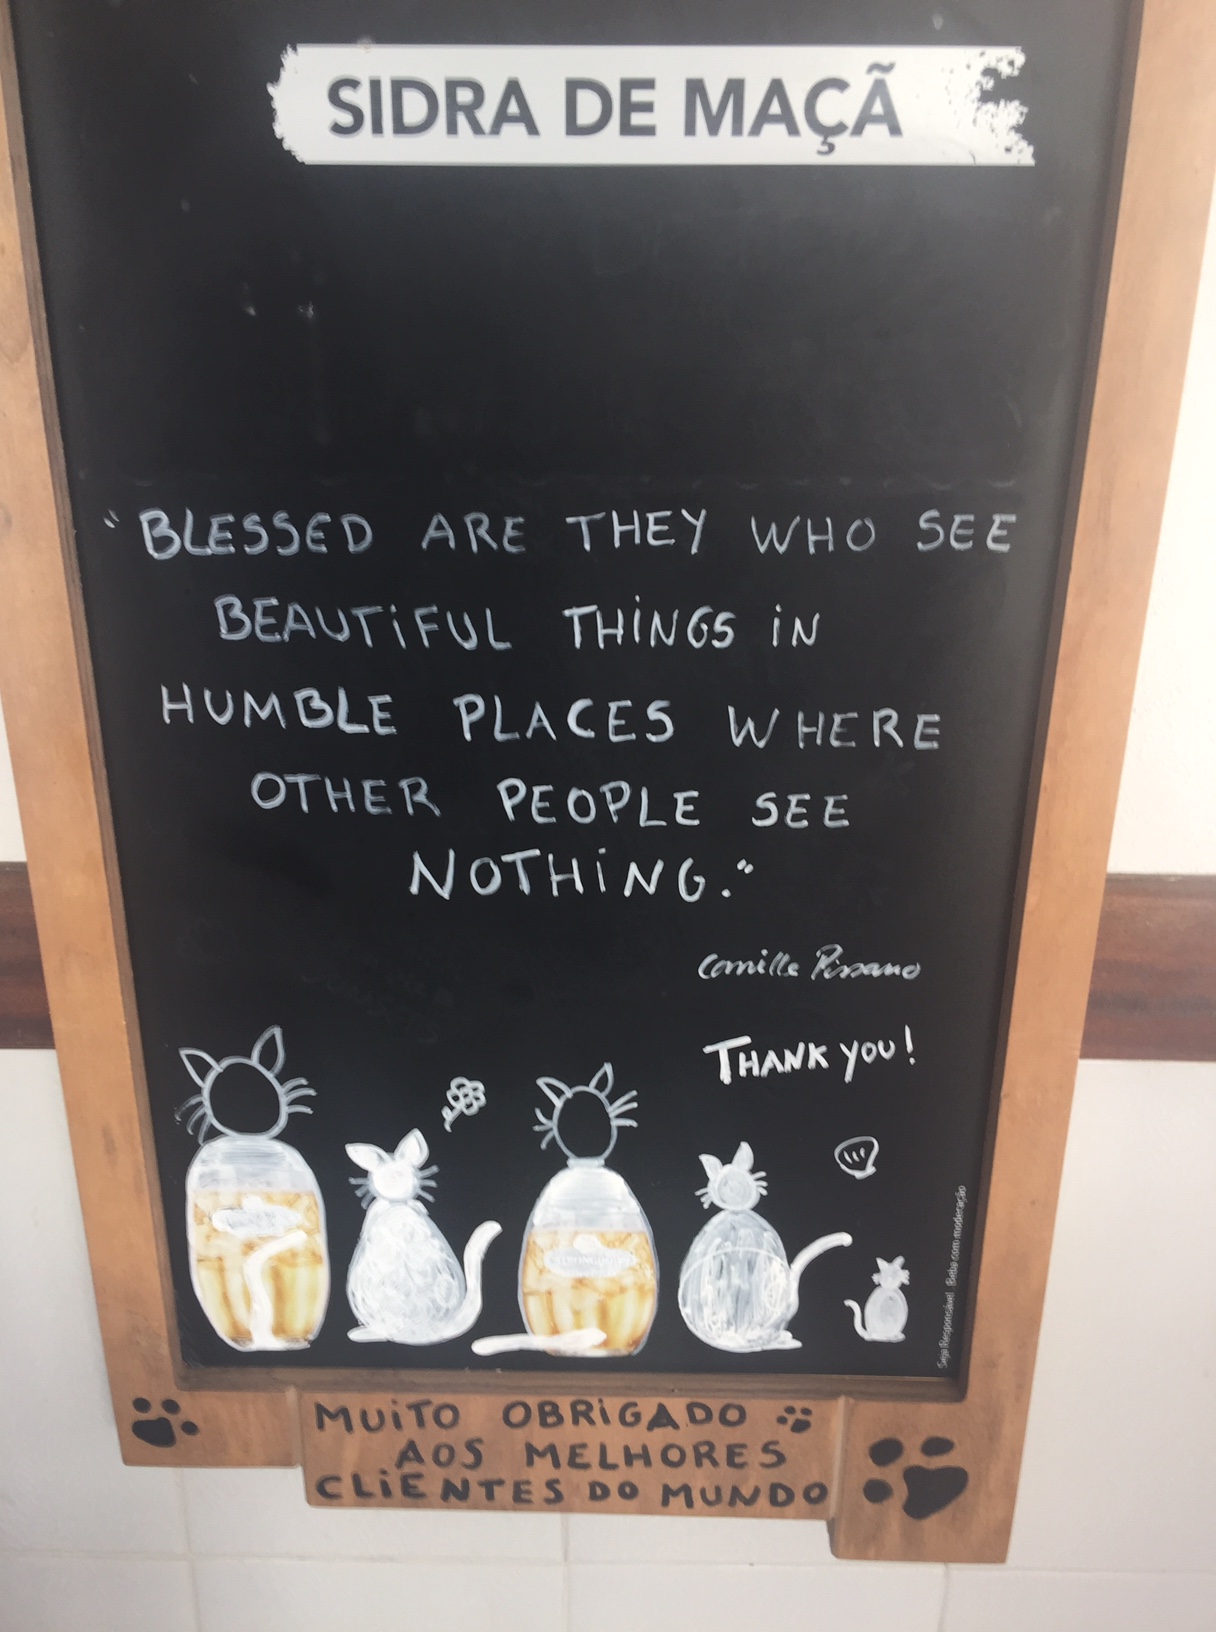 SIDRA DE MAÇÃ
"BLESSED ARE THEY WHO SEE
BEAUTIFUL THINGS IN
HUMBLE PLACES WHERE
OTHER PEOPLE SEE
NOTHING."
Camille Pissarro
THANK YOU!
STRONGBOW
Seja Responsável. Beba com moderação
MUITO OBRIGADO
AOS MELHORES
CLIENTES DO MUNDO